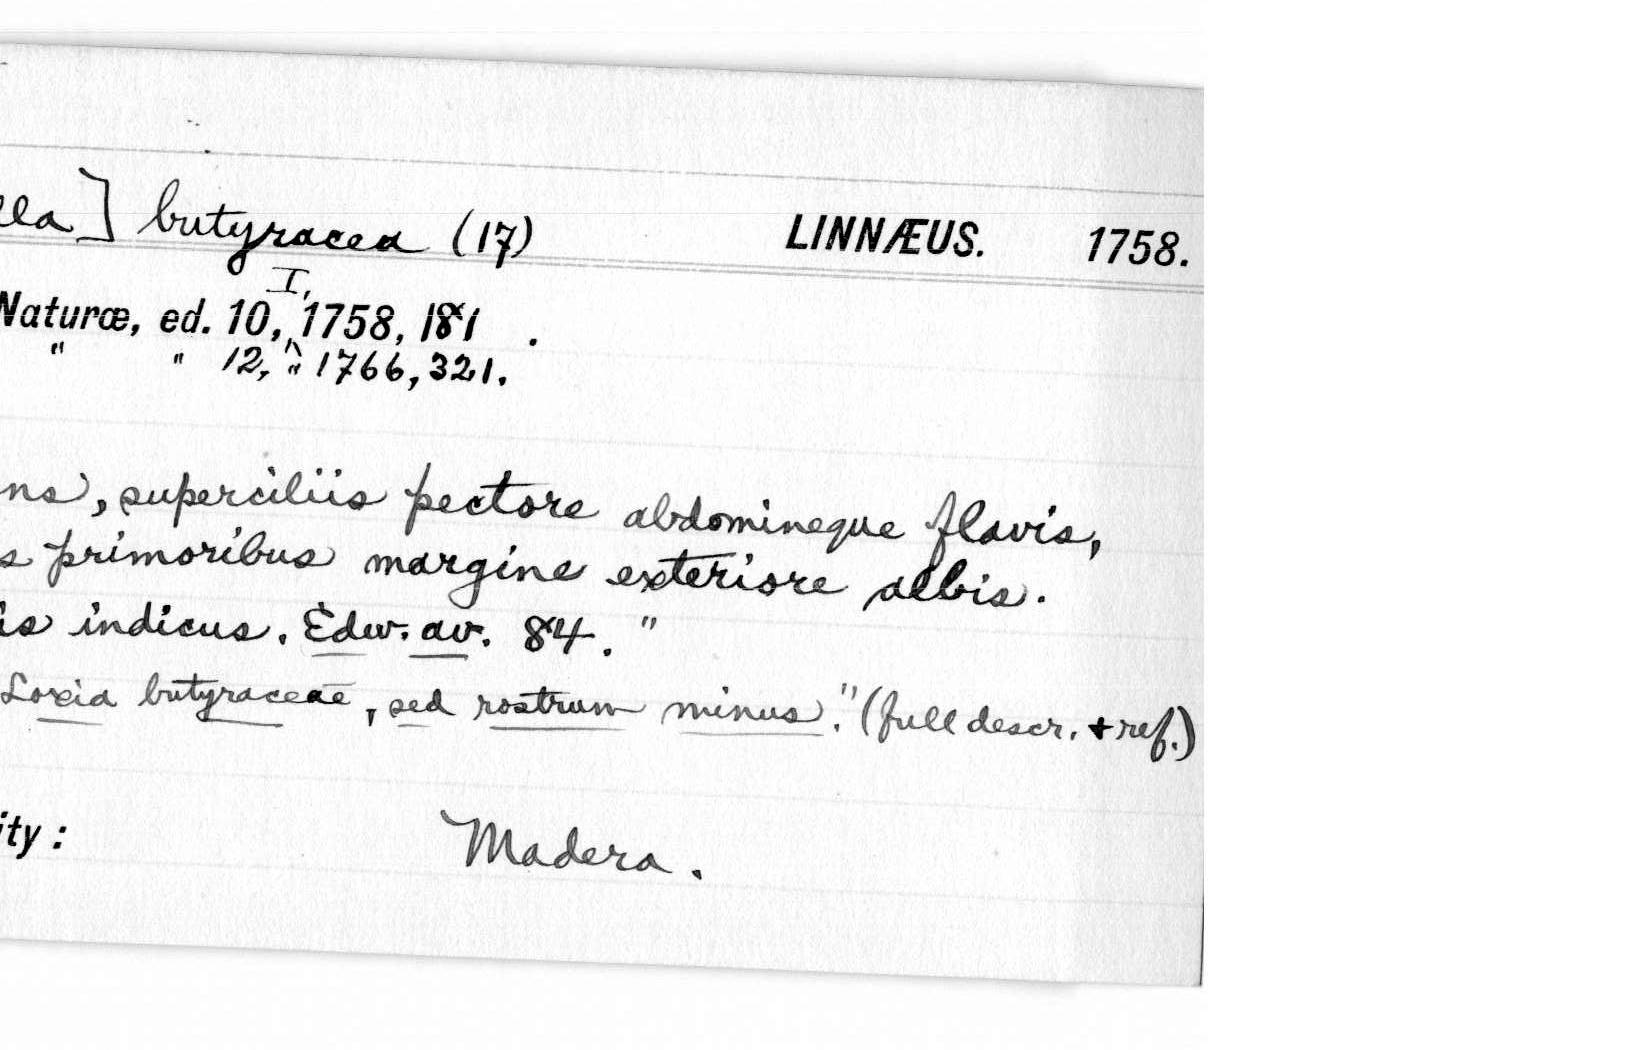 lla] butyracea (17) LINNÆUS. 1758.
I,
Naturæ, ed. 10, 1758, 181 .
" " 12, " 1766, 321.
ns, superciliis pectore abdomineque flavis,
s primoribus margine exteriore albis.
is indicus. Edw. av. 84."
Loxia butyraceae, sed rostrum minus." (full descr. + ref.)
ity: Madera.